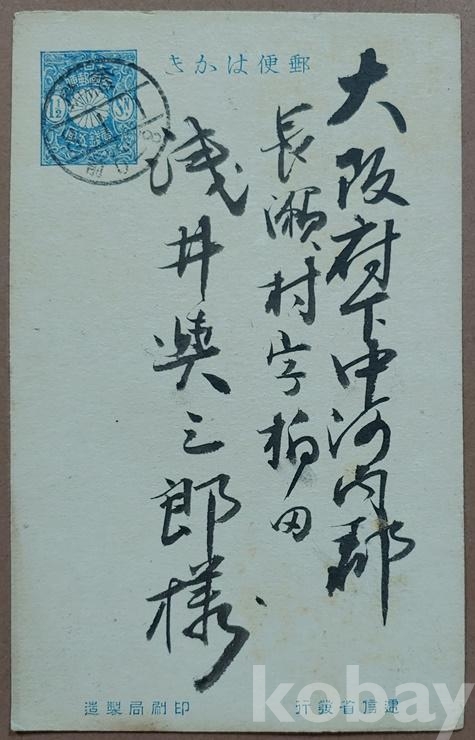 郵便はかき
1½ Sn
大阪府下中河内郡
長瀬村字柏田
浅井與三郎様
逓信省發行
印刷局製造
kobay